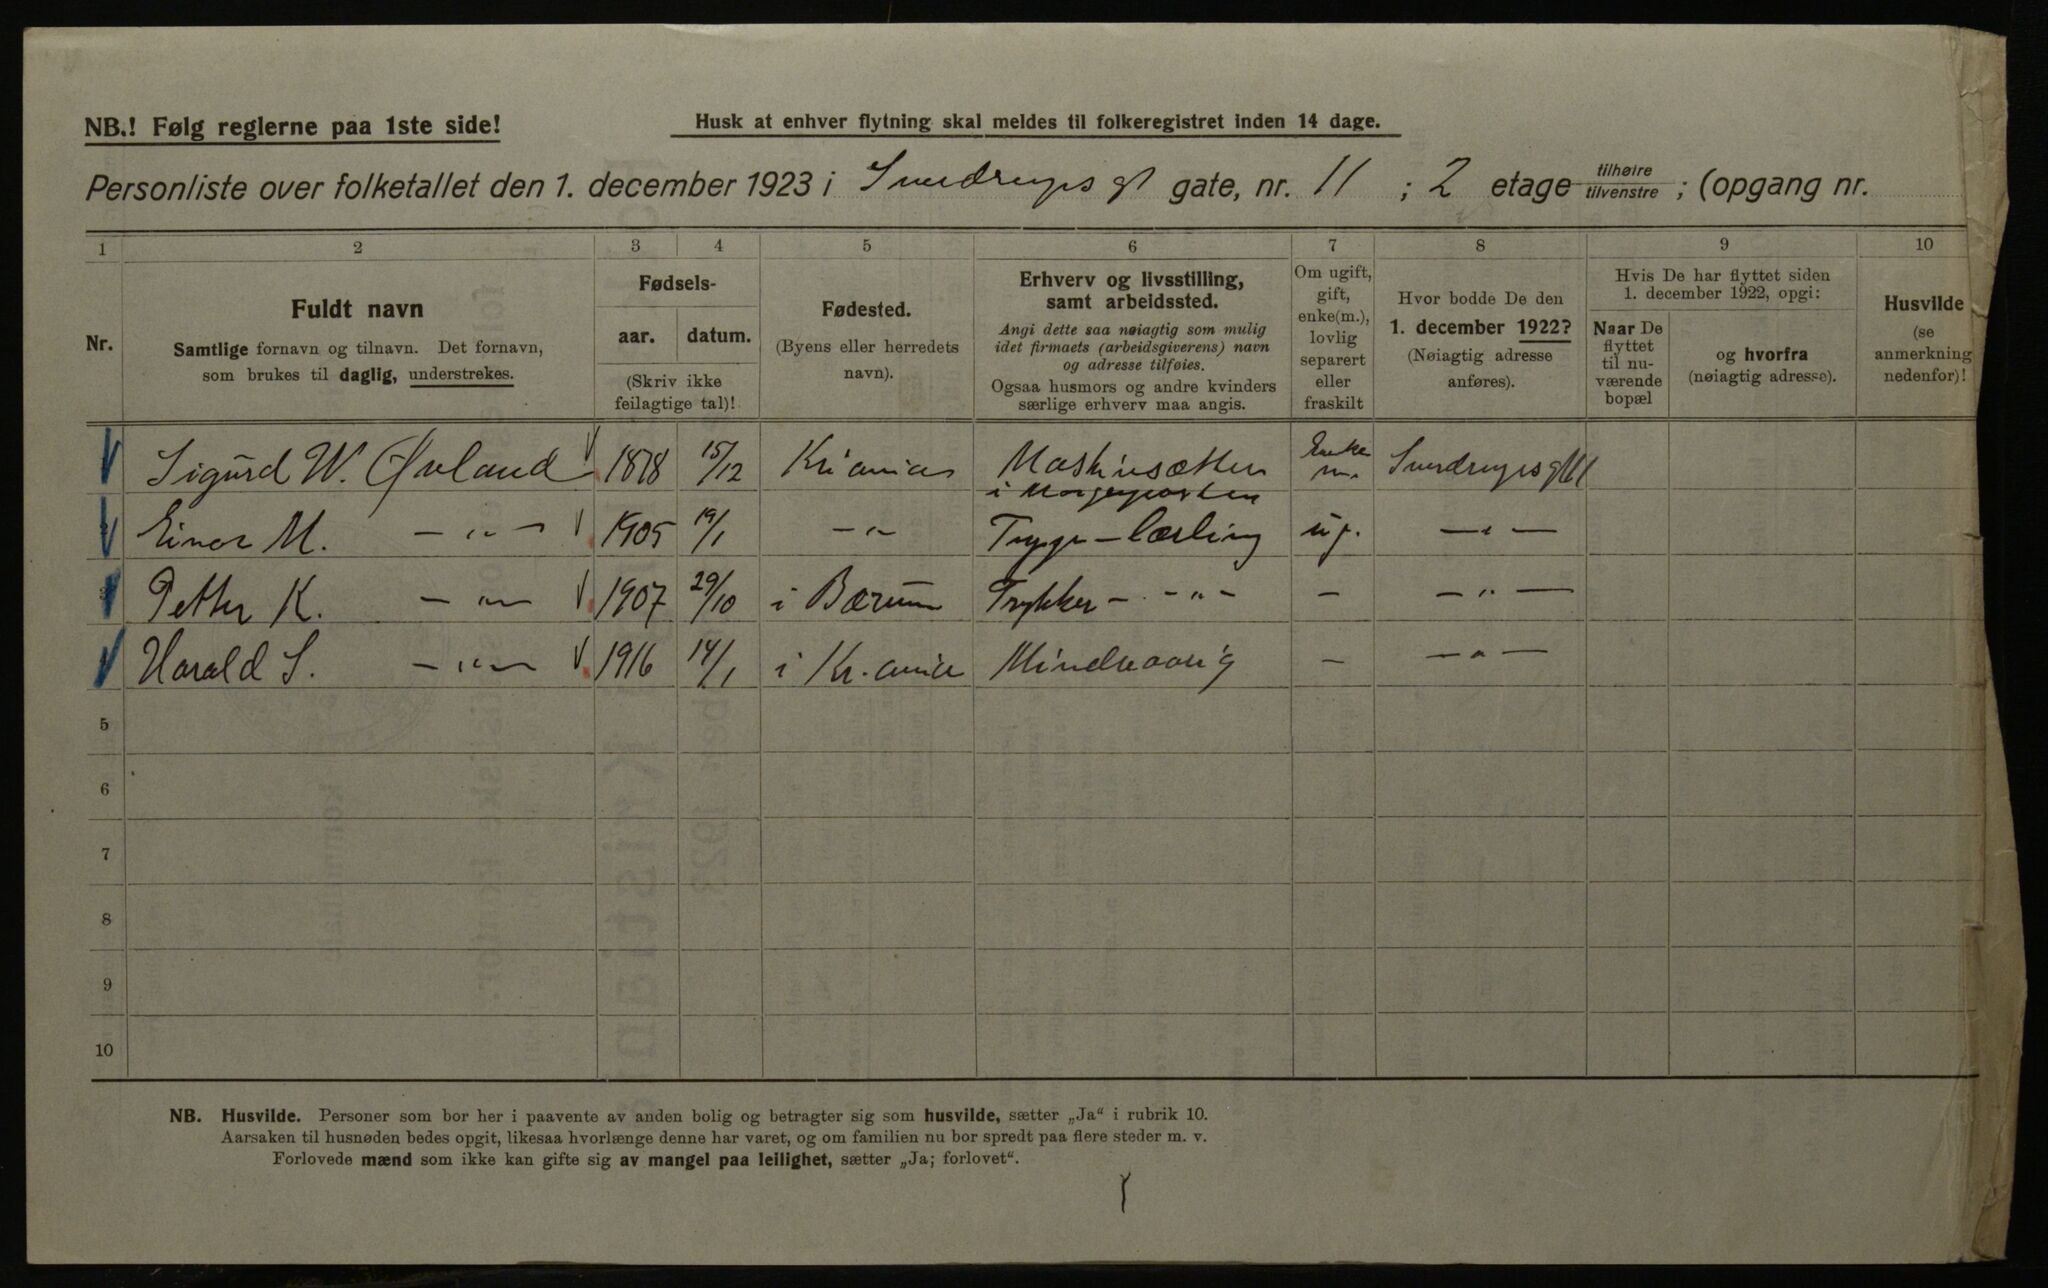 NB.! Følg reglerne paa 1ste side!
Husk at enhver flytning skal meldes til folkeregistret inden 14 dage.
Personliste over folketallet den 1. december 1923 i Sverdrups gt gate, nr. 11 ; 2 etage tilhøire tilvenstre ; (opgang nr.
1 2 3 4 5 6 7 8 9 10
Nr.
Fuldt navn
Samtlige fornavn og tilnavn. Det fornavn,
som brukes til daglig, understrekes.
Fødsels-
aar. datum.
(Skriv ikke
feilagtige tal)!
Fødested.
(Byens eller herredets
navn).
Erhverv og livsstilling,
samt arbeidssted.
Angi dette saa nøiagtig som mulig
idet firmaets (arbeidsgiverens) navn
og adresse tilføies.
Ogsaa husmors og andre kvinders
særlige erhverv maa angis.
Om ugift,
gift,
enke(m.),
lovlig
separert
eller
fraskilt
Hvor bodde De den
1. december 1922?
(Nøiagtig adresse
anføres).
Hvis De har flyttet siden
1. december 1922, opgi:
Naar De
flyttet
til nu-
værende
bopæl
og hvorfra
(nøiagtig adresse).
Husvilde
(se
anmerkning
nedenfor)!
Sigurd W. Øvland 1878 15/12 Kr.ania Maskinsætter Enke m. Sverdrupsgt 11
i Morgenposten
Einar M. — „ — 1905 19/1 — „ — lærling ug. — „ —
Petter K. — „ — 1907 29/10 i Bærum Trykker — „ — — — „ —
Harald S. — „ — 1916 14/1 i Kr.ania Mindreaarig — — „ —
5
6
7
8
9
10
NB. Husvilde. Personer som bor her i paavente av anden bolig og betragter sig som husvilde, sætter „Ja“ i rubrik 10.
Aarsaken til husnøden bedes opgit, likesaa hvorlænge denne har varet, og om familien nu bor spredt paa flere steder m. v.
Forlovede mænd som ikke kan gifte sig av mangel paa leilighet, sætter „Ja; forlovet“.